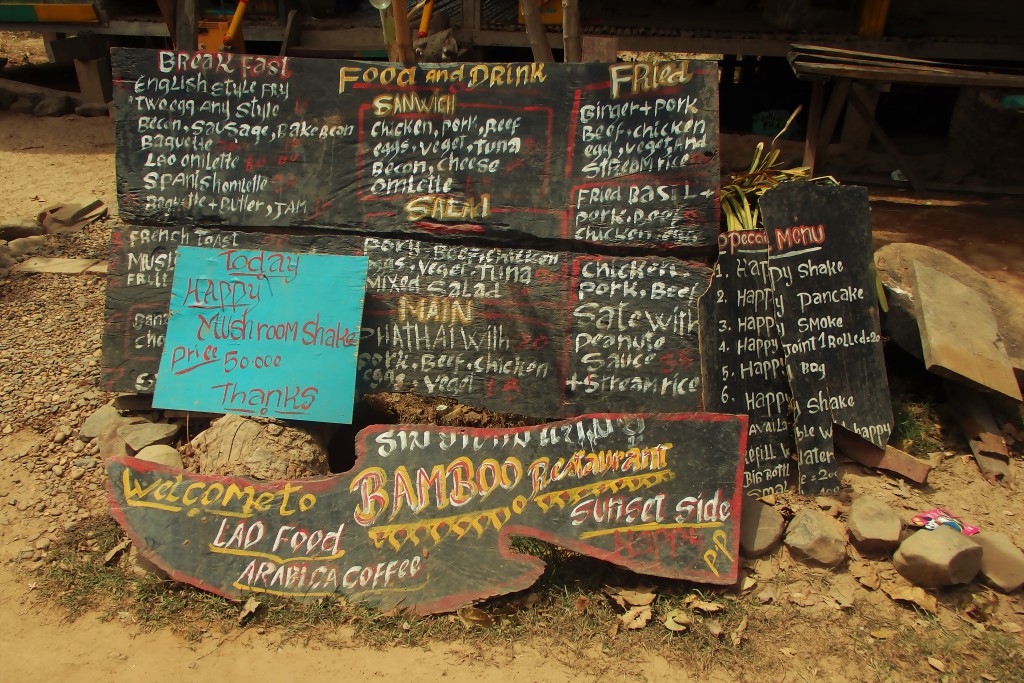 Break Fast
English Style Fry
Two egg Any Style
Becon, Sausage, Bake Bean
Baguette
Lao omlette
Spanish omlette
Baguette + Butter, JAM
French Toast
Food and Drink
SAMWICH
Chicken, Pork, Beef
eggs, veget, Tuna
Becon, Cheese
Omlette
SALAI
Pork, Beef, Chicken
veget, Tuna
Mixed Salad
MAIN
PHATHAI with
Pork, Beef, Chicken
eggs, veget
Fried
Ginger + Pork
Beef, Chicken
egg, veget, And
Stream rice
Fried Basil +
Pork, Beef
Chicken, egg
Chicken
Pork, Beef
Sate with
Peanute
Sauce 35
+ Stream rice
Today
Happy
Mushroom Shake
Price 50.000
Thanks
MENU
1. Happy Shake
2. Happy Pancake
3. Happy Smoke
4. Happy Joint 1 Rolled = 20
5. Happy Bag
6. Happy Shake
Happy
Refill Water
Big Bottl
Small
Welcome to
BAMBOO Restaurant
Sunset Side
LAO Food
Happy
ARABICA COFFEE